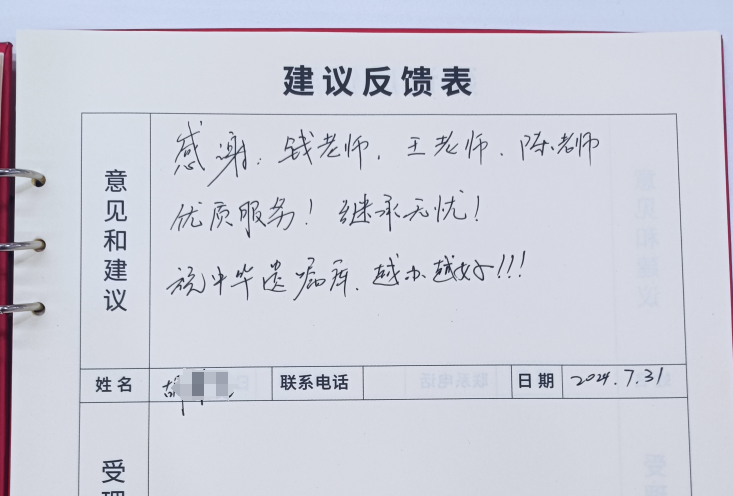 建议反馈表
意见和建议
感谢：钱老师、王老师、陈老师
优质服务！继承无忧！
祝中华遗嘱库、越办越好！！！
姓名 胡 联系电话 日期 2024.7.31
受理